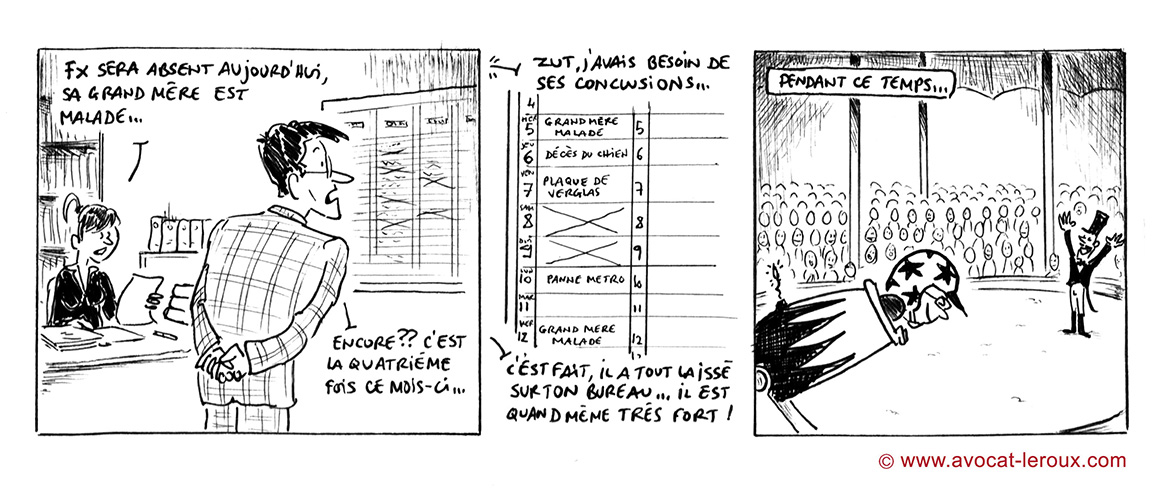 FX SERA ABSENT AUJOURD'HUI,
SA GRAND MÊRE EST
MALADE...
ENCORE?? C'EST
LA QUATRIÉME
FOIS CE MOIS-CI...
ZUT, J'AVAIS BESOIN DE
SES CONCLUSIONS...
4
MER 5 GRAND MÈRE MALADE 5
JEU 6 DÉCÈS DU CHIEN 6
VEN 7 PLAQUE DE VERGLAS 7
SAM 8 8
DIM 9 9
LUN 10 PANNE METRO 10
MAR 11 11
MER 12 GRAND MERE MALADE 12
C'ÉST FAIT, IL A TOUT LAISSÉ
SUR TON BUREAU... IL EST
QUAND MÊME TRÉS FORT !
PENDANT CE TEMPS...
© www.avocat-leroux.com